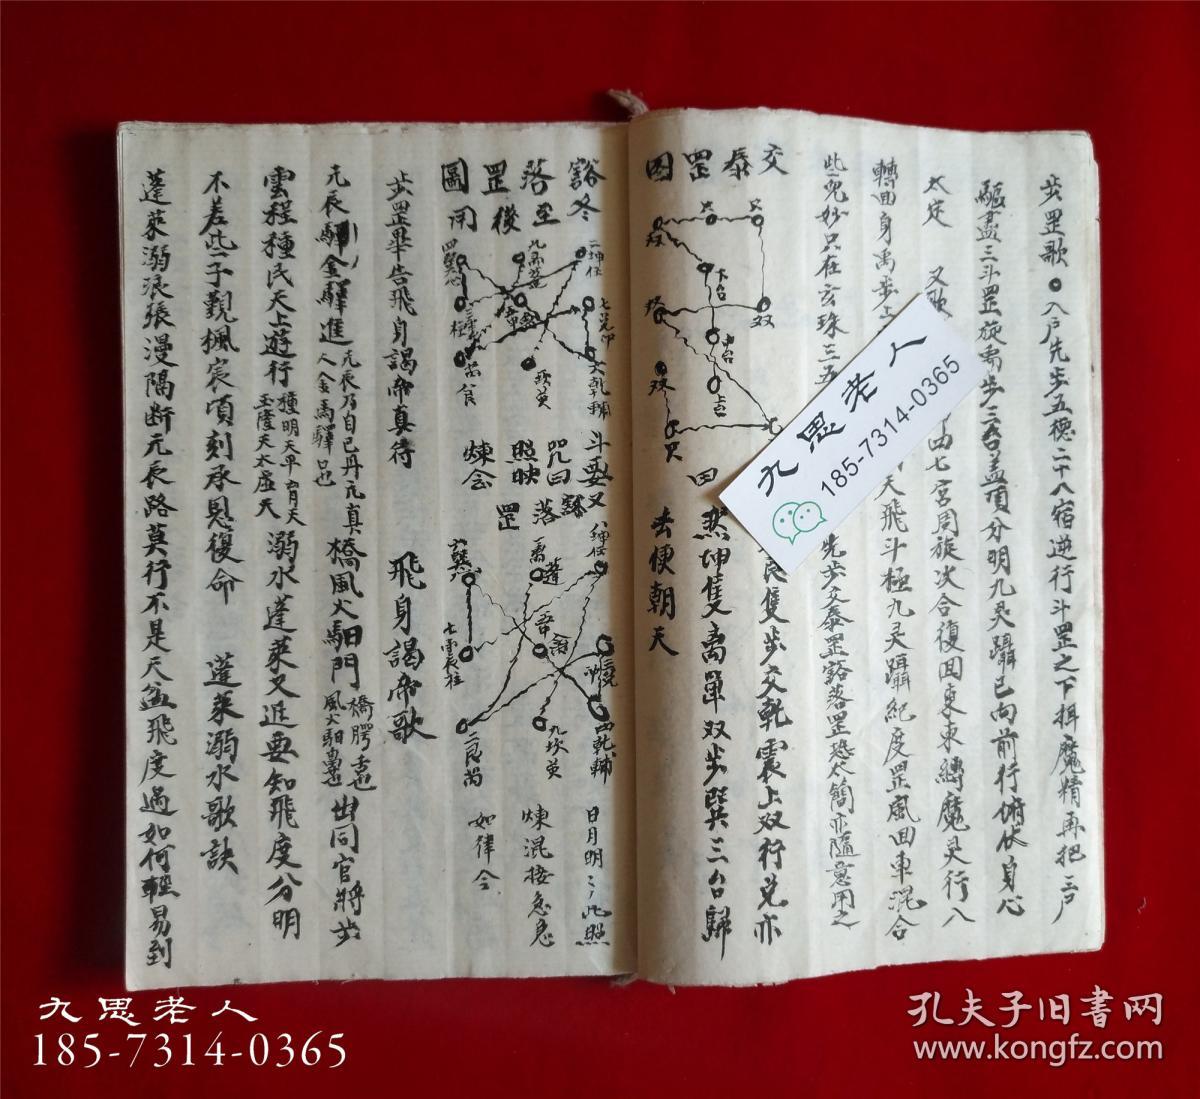 步罡歌 入户先步五德二十八宿逆行斗罡之下揖魔精再把三户
驅盡三斗罡旋禹步三台蓋頂分明九灵躡已向前行俯伏身心
太定 又歌
四七宮周旋次合復回東東縛魔灵行八
轉回身禹步上
天飛斗極九灵躡紀度罡風回車混合
此兒妙只在玄珠三五
先步交泰罡豁落罡恐太簡亦隨意用之
交泰罡图
双
下台
中台
上台
双
双
隻步交乾震上双行兑亦
然坤隻离單双步巽三台歸
去便朝天
豁落罡圖
冬至後用
二坤任
七兑
六乾輔
九离
斗要又
咒曰
照映
煉会
豁落罡
八坤任
九坎英
西乾輔
日月明之此照
煉混接急急
如律令
步罡畢告飛身謁帝真待 飛身謁帝歌
元辰驛金驛進 元辰乃自己丹元真人金馬驛也 橋風火馹門 出同官將步
雲程種民天上遊行 種明天平育天玉隆天太虛天 溺水蓬萊又近要知飛度分明
不差些子覲楓宸頃刻承恩復命 蓬萊溺水歌訣
蓬萊溺浪張漫隔断元辰路莫行不是天盆飛度過如何輕易到
九思老人
185-7314-0365
九思老人
185-7314-0365
孔夫子旧书网
www.kongfz.com